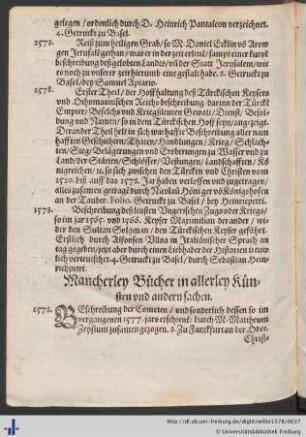 gelegen / ordenlich durch D. Heinrich Pantaleon verzeichnet.
4. Getruckt zu Basel.
1578. Reiß zum heiligen Grab / so M. Daniel Ecklin vō Arow
gen Jerusalē gethan / was er in der zeit erlitten / sampt einer kurtzē
beschreibung deß gelobten Landts / vñ der Statt Jerusalem / wie
es noch zu vnserer zeit hierumb eine gestalt habe. 8. Getruckt zu
Basel / bey Samuel Apiario.
1578. Erster Theil / der Hoffhaltung deß Türckischen Keysers
vnd Othomannischen Reichs beschreibung darinn der Türckē
Empter / Befelchs vnd Kriegßleute Gewalt / Dienst / Besol-
dung vnd Namen / so in dem Türckischen Hoff seyn / angezeigt.
Der ander Theil helt in sich warhaffte Beschreibung aller nam
hafften Geschichten / Thaten / Handlungen / Krieg / Schlach-
ten / Sieg / Belägerungen vnd Eroberungen zu Wasser vnd zu
Land / der Stätten / Schlösser / Vestungen / Landschafften / Kö-
nigreichen / ꝛc. so sich zwischen den Türcken vnd Christen vom
1520. biß auff das 1578. Jar haben verloffen vnd zugetragen /
alles zusamen getragē durch Nicolaū Höniger von Königshofen
an der Tauber. Folio. Getruckt zu Basel / bey / Heinricpetri.
1578. Beschreibung deß letsten Vngerischen Zugs oder Kriegs /
so im jar 1565. vnd 1566. Keyser Maximilian der ander / wi-
der den Sultan Solyman / den Türckischen Keyser geführt.
Erstlich durch Alfonsen Vlloa in Italiänischer Sprach an
tag gegeben / jetz aber durch einen Liebhaber der Historien trewu
lich verteutschet. 4. Getruckt zu Basel / durch Sebastian Hein-
richpetri.
Mancherley Bücher in allerley Kün-
sten vnd andern sachen.
1578. BEschreibung der Cometen / vnd sonderlich dessen so im
vergangenen 1577. jars erschinē / durch M. Mattheum
Zeysium zusamen gezogen. 8. Zu Franckfurt an der Oder.
Christ-
http://dl.ub.uni-freiburg.de/diglit/willer1578/0037
© Universitätsbibliothek Freiburg